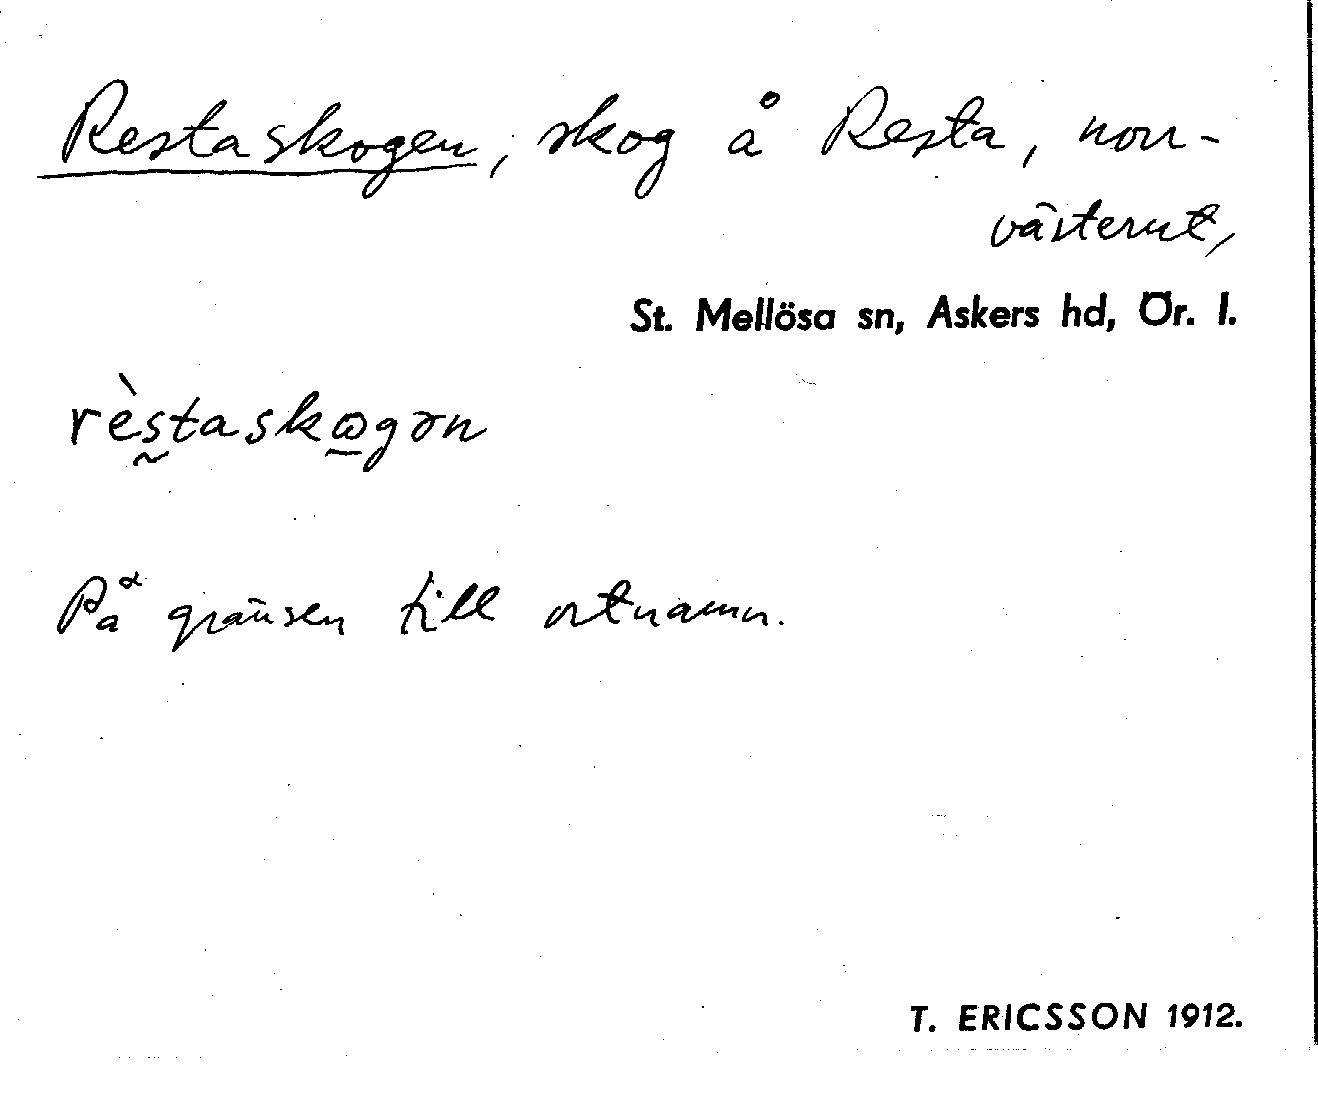 Restaskogen, skog å Resta, norr-
västerut,
St. Mellösa sn, Askers hd, Ör. l.
rès̰taskω̲gən
På gränsen till ortnamn.
T. ERICSSON 1912.